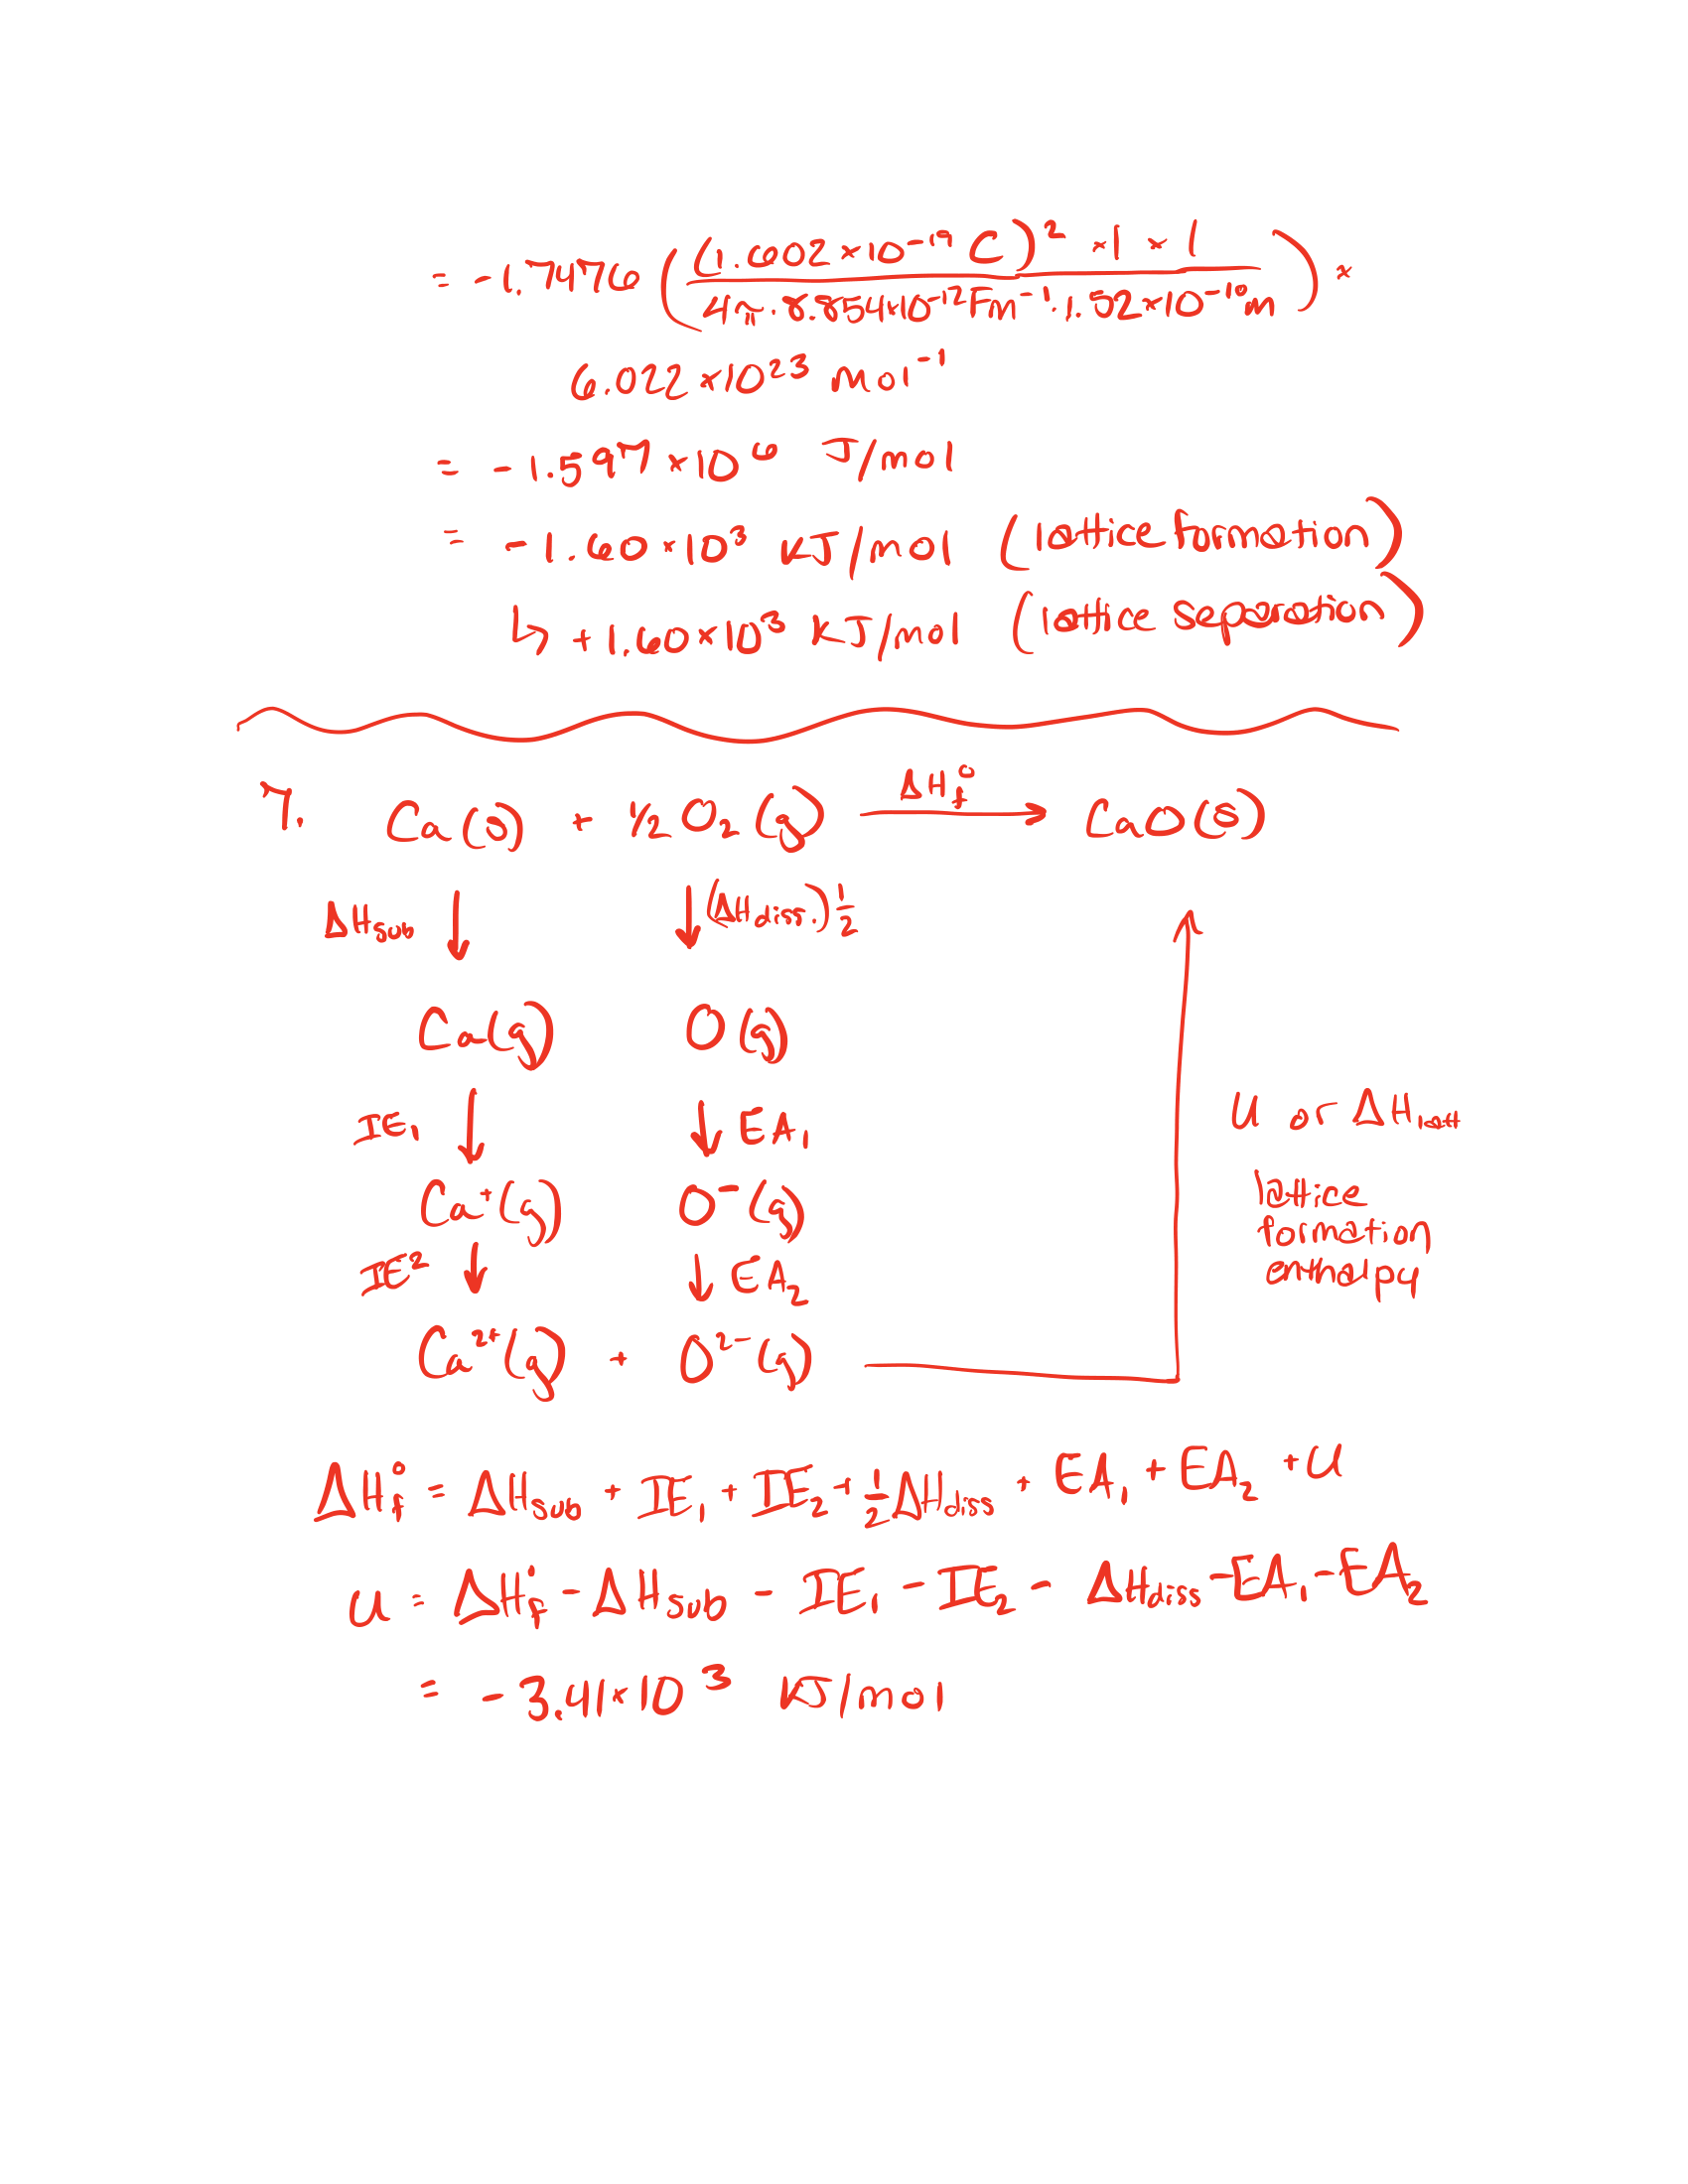 = -1.7476 ( (1.602×10⁻¹⁹ C)² ×1 × 1 / 4π·8.854×10⁻¹²Fm⁻¹·1.52×10⁻¹⁰m ) ×
6.022×10²³ mol⁻¹
= -1.597×10⁶ J/mol
= -1.60×10³ KJ/mol (lattice formation)
↳ +1.60×10³ KJ/mol (lattice separation)
7. Ca(s) + 1/2 O₂(g) —ΔH°f→ CaO(s)
ΔHsub ↓ ↓ (ΔHdiss.)½
Ca(g) O(g)
IE₁ ↓ ↓ EA₁
U or ΔHlatt
Ca⁺(g) O⁻(g)
lattice
formation
enthalpy
IE² ↓ ↓ EA₂
Ca²⁺(g) + O²⁻(g)
ΔH°f = ΔHsub + IE₁ + IE₂ + ½ΔHdiss + EA₁ + EA₂ + U
U = ΔH°f - ΔHsub - IE₁ - IE₂ - ΔHdiss - EA₁ - EA₂
= -3.41×10³ KJ/mol